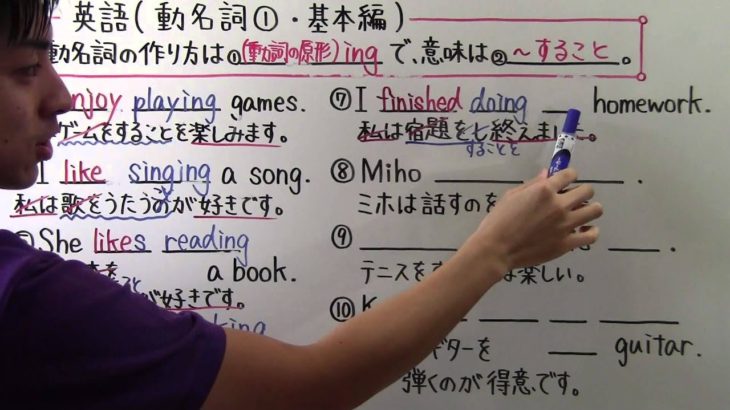 英語(動名詞①・基本編)
動名詞の作り方は①(動詞の原形)ingで、意味は②～すること。
enjoy playing games.
ゲームをすることを楽しみます。
I like singing a song.
私は歌をうたうのが好きです。
She likes reading
a book.
が好きです。
⑦ I finished doing ___ homework.
私は宿題を終えました。
することを
⑧ Miho ___.
ミホは話すのを
⑨
テニスを は楽しい。
⑩ K
ギターを ___ guitar.
弾くのが得意です。